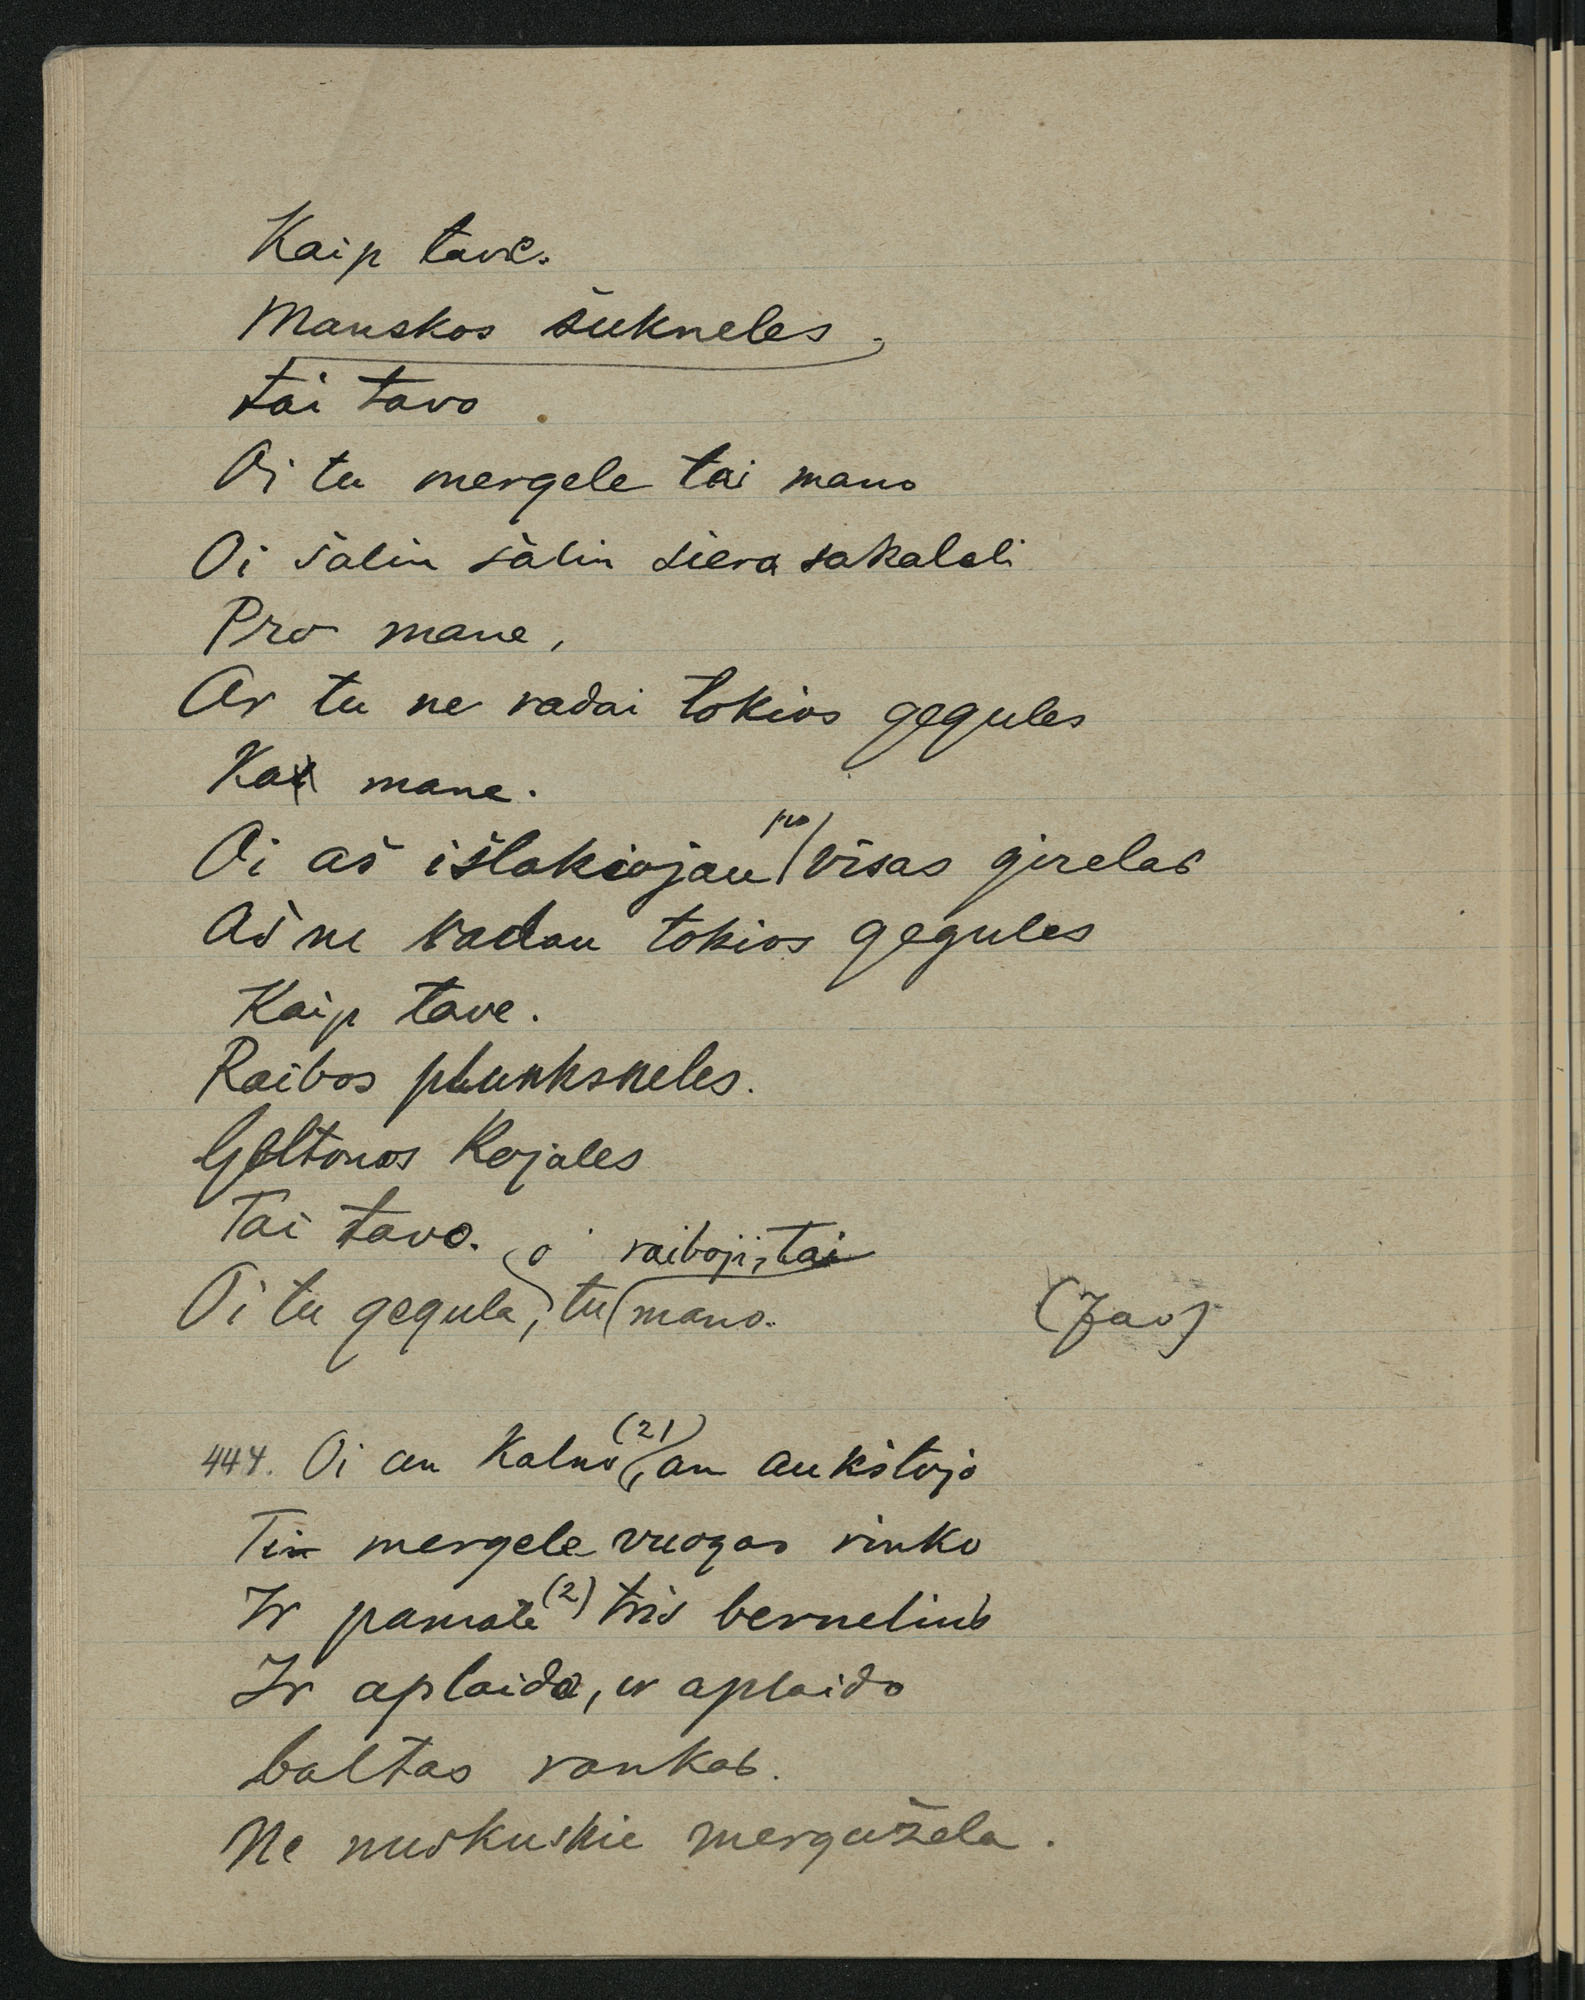 Kaip tave.
Manskos šukneles,
tai tavo
Oi tu mergele tai mano
Oi šalin šalin siera sakalali
Pro mane,
Ar tu ne radai tokios gegules
Kai mane.
Oi aš išlakiojau po visas girelas
Aš ne radau tokios gegules
Kaip tave.
Raibos plunksneles.
Geltonos Kojales
Tai tavo.
Oi tu gegula, o tu raboji, tai mano.
444. Oi an Kalno (2), an aukštojo
Tin mergele vuogas rinko
Ir pamate (2) tris bernelius
Ir aplaido, ir aplaido
baltas rankas.
Ne nuskuskie mergužela.